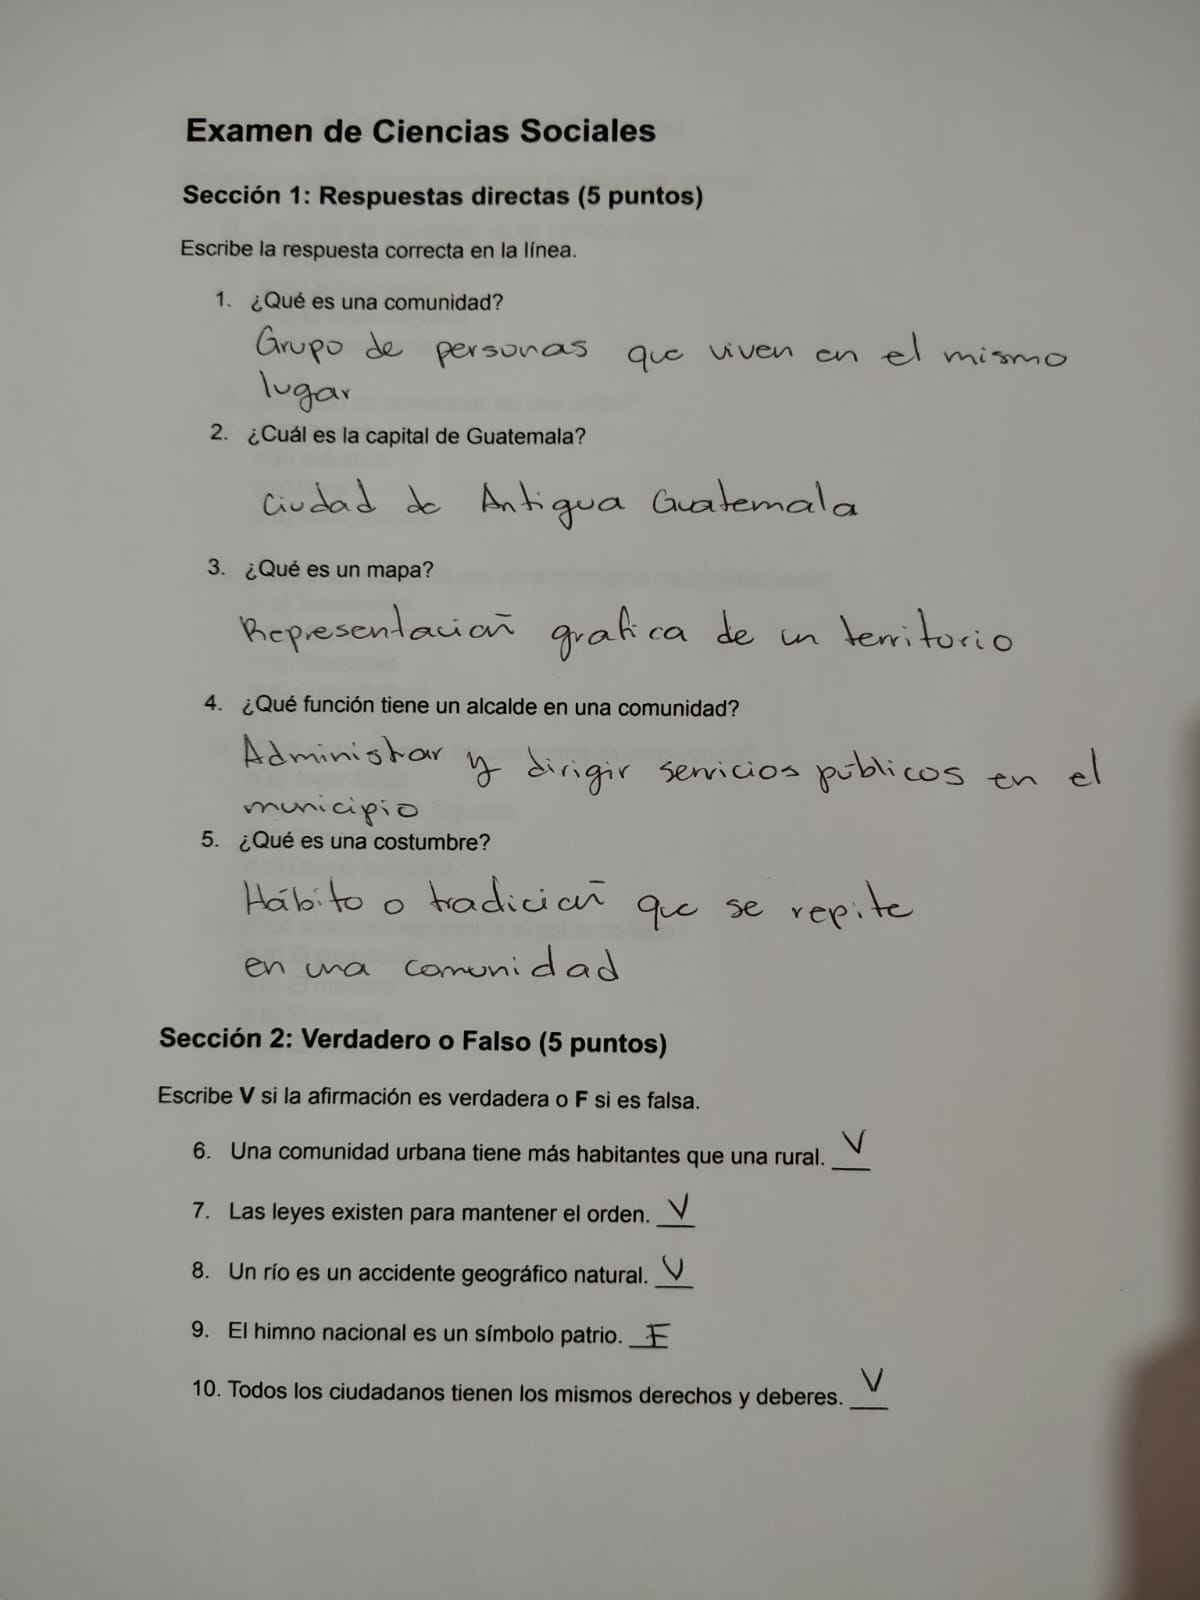 Examen de Ciencias Sociales
Sección 1: Respuestas directas (5 puntos)
Escribe la respuesta correcta en la línea.
1. ¿Qué es una comunidad?
Grupo de personas que viven en el mismo
lugar
2. ¿Cuál es la capital de Guatemala?
Ciudad de Antigua Guatemala
3. ¿Qué es un mapa?
Representación grafica de un territorio
4. ¿Qué función tiene un alcalde en una comunidad?
Administrar y dirigir servicios públicos en el
municipio
5. ¿Qué es una costumbre?
Hábito o tradición que se repite
en una comunidad
Sección 2: Verdadero o Falso (5 puntos)
Escribe V si la afirmación es verdadera o F si es falsa.
6. Una comunidad urbana tiene más habitantes que una rural. V
7. Las leyes existen para mantener el orden. V
8. Un río es un accidente geográfico natural. V
9. El himno nacional es un símbolo patrio. F
10. Todos los ciudadanos tienen los mismos derechos y deberes. V